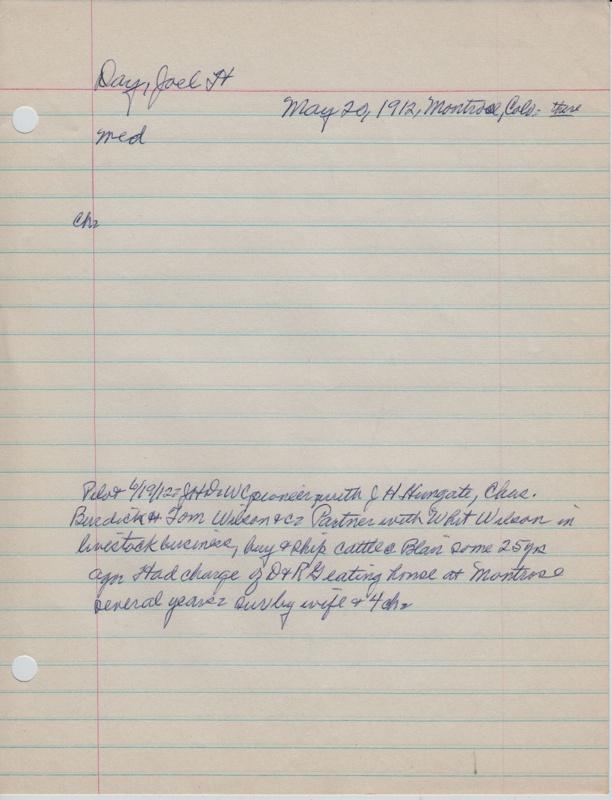 Day, Joel H
May 20, 1912, Montrose, Colo= there
med
chn
Pilot 6/19/12= JHD= WC pioneer with J H Hungate, Chas.
Burdick & Tom Wilson &c= Partner with Whit Wilson in
livestock business, buy & ship cattle @ Blair some 25 yrs
ago Had charge of D&RG eating house at Montrose
several years= Sur by wife & 4 chn